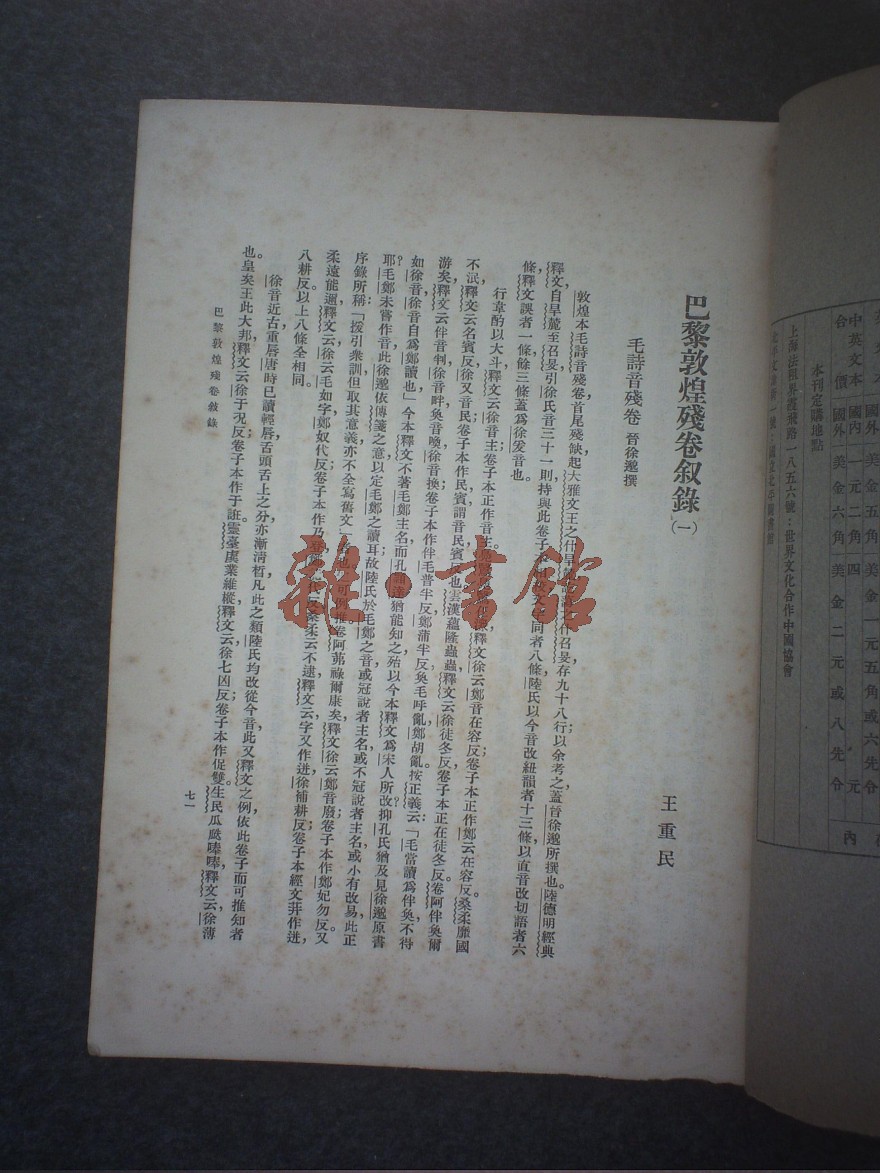 巴黎敦煌殘卷叙錄(一)
王重民
毛詩音殘卷 晉徐邈撰
敦煌本毛詩音殘卷首尾殘缺起大雅文王之什旱麓 什召旻存九十八行以余考之蓋晉徐邈所撰也。陸德明經典
釋文,自旱麓至召旻引徐氏音三十一則持與此卷子 同者八條陸氏以今音改紐韻者十三條以直音改切語者六
條,釋文誤者一條餘三條蓋爲徐爰音也。
行葦酌以大斗釋文云徐音主卷子本正作音主。 釋文徐云鄭音在容反卷子本正作鄭云在容反。桑柔靡國
不泯,釋文云名賓反徐又音民卷子本作民賓謂音民賓反也雲漢蘊隆蟲蟲釋文云徐徒冬反卷子本正在徒冬反。卷阿伴奐爾
游矣釋文云伴音判徐音畔奐音喚徐音換卷子本作伴毛普半反鄭蒲半反奐毛呼亂鄭胡亂按正義云:「毛當讀爲伴奐不得
如徐音徐音自爲鄭讀也」今本釋文不著毛鄭主名而孔 猶能知之殆以今本釋文爲宋人所改抑孔氏猶及見徐邈原書
耶?毛鄭未嘗作音此徐邈依傳箋之意以定毛鄭之讀耳故陸氏於毛鄭之音或冠說者主名或不冠說者主名或小有改易此正
序錄所稱:「援引衆訓但取其意義亦不全寫舊文」 可例推卷阿茀祿爾康矣釋文徐云鄭音廢卷子本作鄭妃勿反。又
柔遠能邇釋文云徐云毛如字鄭奴代反卷子本作乃 代反桑柔云不逮釋文云字又作迸徐補耕反卷子本經文幷作迸,
八耕反以上八條全相同。
徐音近古重唇唐時已讀輕唇舌頭舌上之分亦漸清晳凡此之類陸氏均改從今音此又釋文之例依此卷子而可推知者
也。皇矣王此大邦釋文云徐于況反卷子本作于誑。靈臺虡業維樅釋文云徐七凶反卷子本作促雙。生民瓜瓞唪唪釋文云,徐薄
巴黎敦煌殘卷敘錄
七一
雜·書館
國外美金五角美金一元五角或六先令
中英文本國內一元二角四元
合價國外美金六角美金二元或八先令
內
本刊定購地點
上海法租界霞飛路一八五六號:世界文化合作中國協會